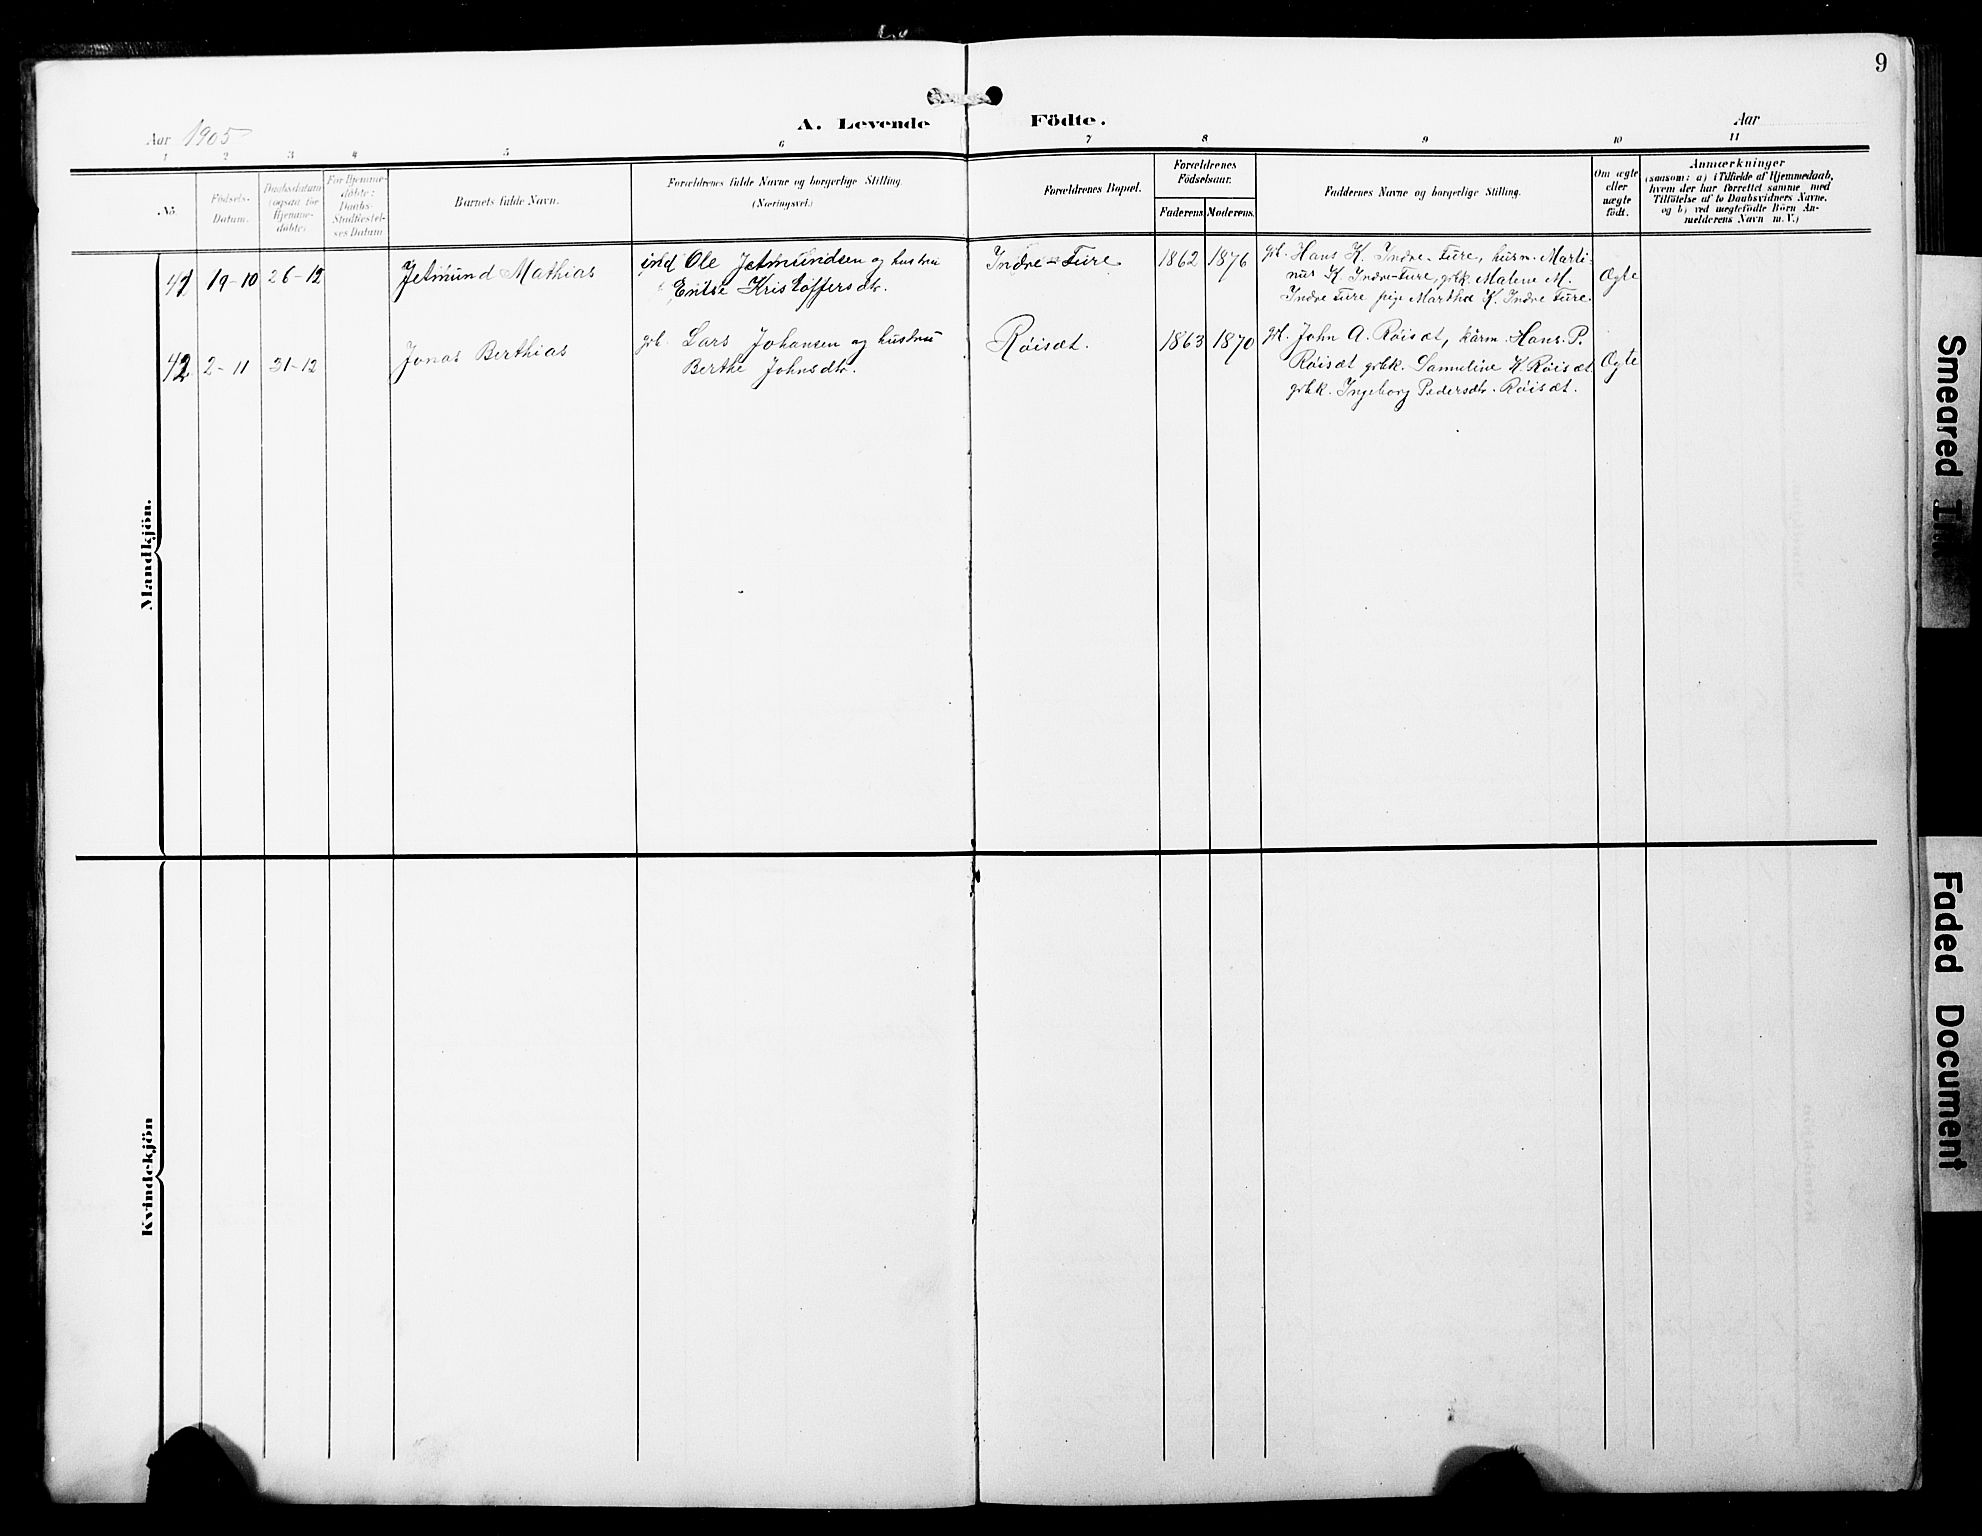 9
A. Levende Födte.
Aar 1905
Aar
1 2 3 4 5 6 7 8 9 10 11
No.
Fødsels-
Datum.
Daabsdatum
(ogsaa for
Hjemme-
døbte.
For Hjemme-
døbte:
Daabs-
Stadfæstel-
ses Datum
Barnets fulde Navn.
Forældrenes fulde Navne og borgerlige Stilling.
(Næringsvei.)
Forældrenes Bopæl.
Forældrenes
Fødselsaar.
Faderens. Moderens.
Faddernes Navne og borgerlige Stilling.
Om ægte
eller
uægte
födt.
Anmærkninger
(saasom: a) i Tilfælde af Hjemmedaab,
hvem der har forrettet samme med
Tilföielse af to Daabsvidners Navne,
og b) ved uægtefödte Börn An-
melderens Navn m. V.)
Mandkjön.
41 19-10 26-12
Jetmund Mathias
ind Ole Jetmundsen og hustru
Kristoffersdtr.
Indre-Fure
1862 1876
Hans K. Indre-Fure, husm. Marti-
nus K. Indre-Fure, grbk. Malene M.
Indre Fure pige Martha K. Indre Fure
Ægte
42 2-11 31-12
Jonas Berthias
grb. Lars Johansen og hustru
Berthe Johnsdtr.
Röisæt.
1863 1870
John A. Röisæt, kårm. Hans P.
Röisæt grbk. Samuline K. Röisæt
grbk. Ingeborg Pedersdtr. Röisæt.
Ægte
Kvindekjön
Smeared Ink
Faded Document